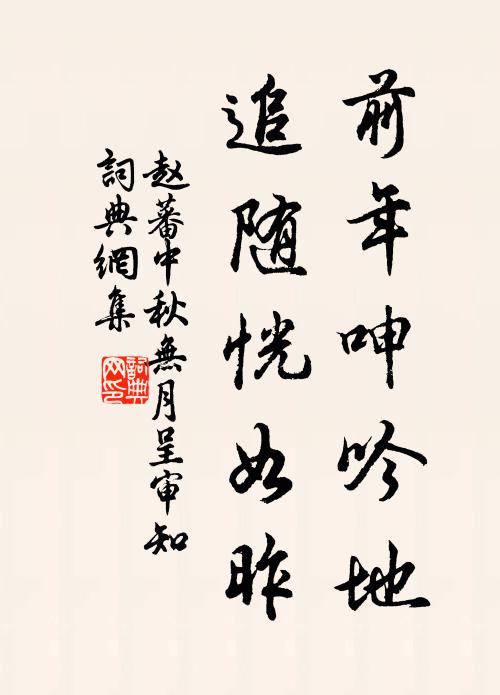 前年呻吟地
追随恍如昨
赵蕃中秋無月呈审知
詞典網集
詞典
网印